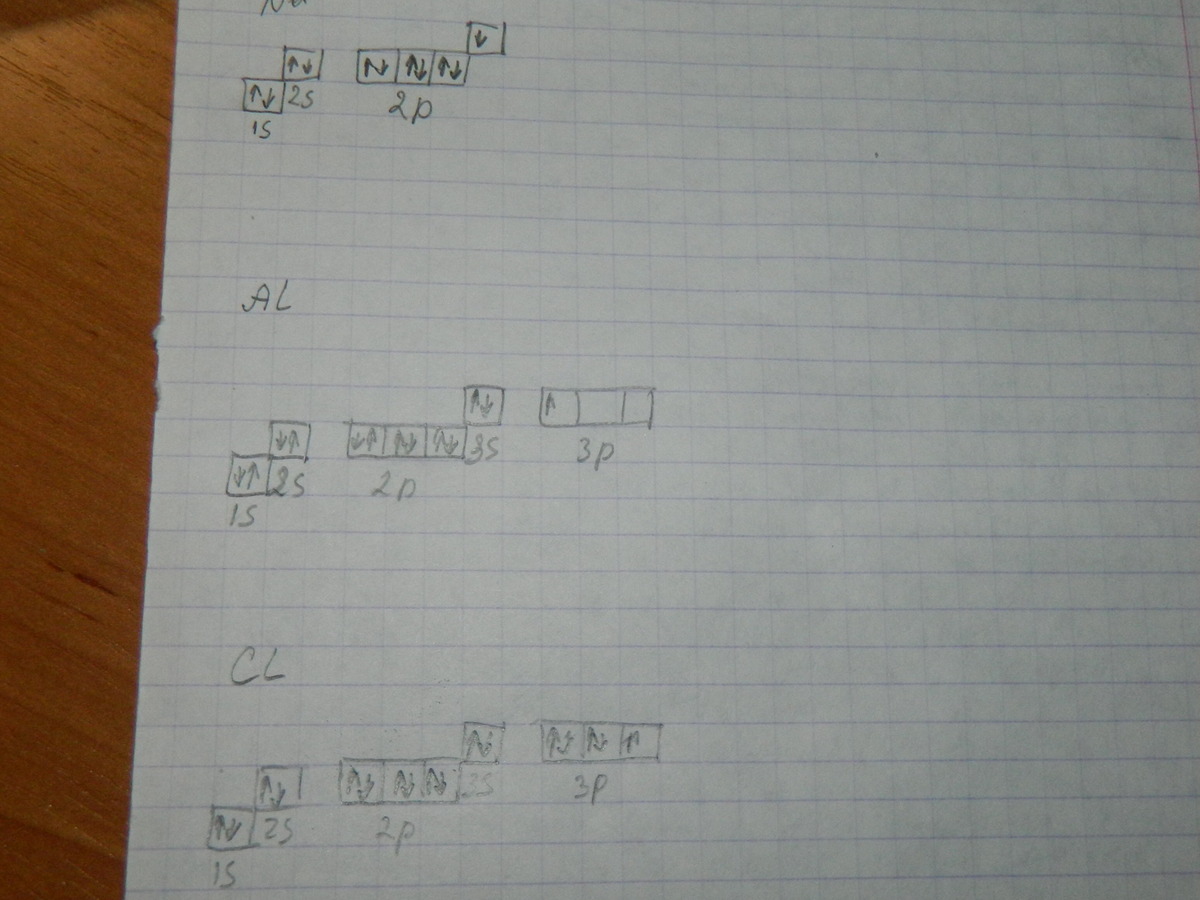 Na
↓
↑↓ ↑↓ ↑↓ ↑↓
↑↓ 2s 2p
1s
AL
↑↓ ↑
↓↑ ↓↑ ↑↓ ↑↓ 3s 3p
↓↑ 2s 2p
1s
CL
↑↓ ↑↓ ↑↓ ↑
↑↓ ↑↓ ↑↓ ↑↓ 3s 3p
↑↓ 2s 2p
1s